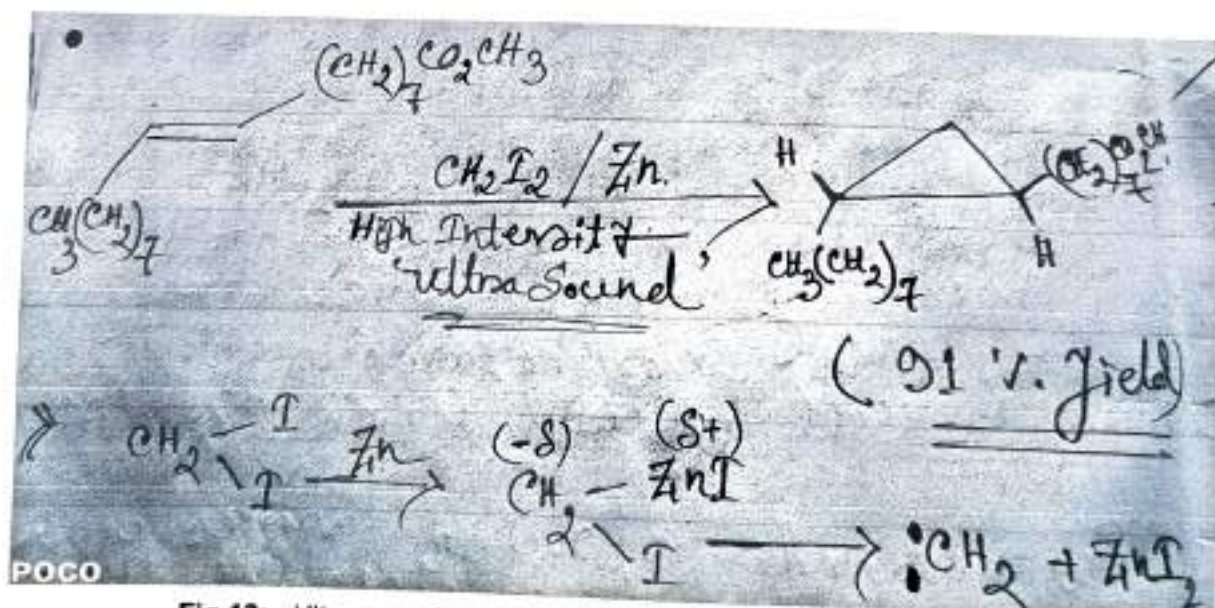 (CH2)7 CO2CH3
CH3(CH2)7
CH2I2 / Zn.
High Intensity
'Ultra Sound'
H
(CH2)7
H
CH3(CH2)7
( 91 %. Yield)
CH2 I I Zn (-δ) CH2 (δ+) ZnI I :CH2 + ZnI2
POCO